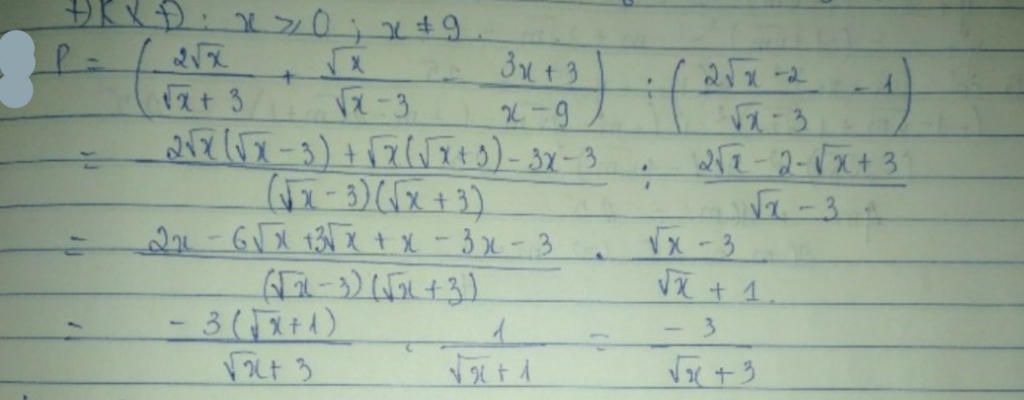 ĐKXĐ: x ≥ 0 ; x ≠ 9.
P = (2√x/(√x + 3) + √x/(√x - 3) - (3x + 3)/(x - 9)) : ((2√x - 2)/(√x - 3) - 1)
= (2√x(√x - 3) + √x(√x + 3) - 3x - 3)/((√x - 3)(√x + 3)) : (2√x - 2 - √x + 3)/(√x - 3)
= (2x - 6√x + 3√x + x - 3x - 3)/((√x - 3)(√x + 3)) . (√x - 3)/(√x + 1)
= -3(√x + 1)/(√x + 3) . 1/(√x + 1) = -3/(√x + 3)